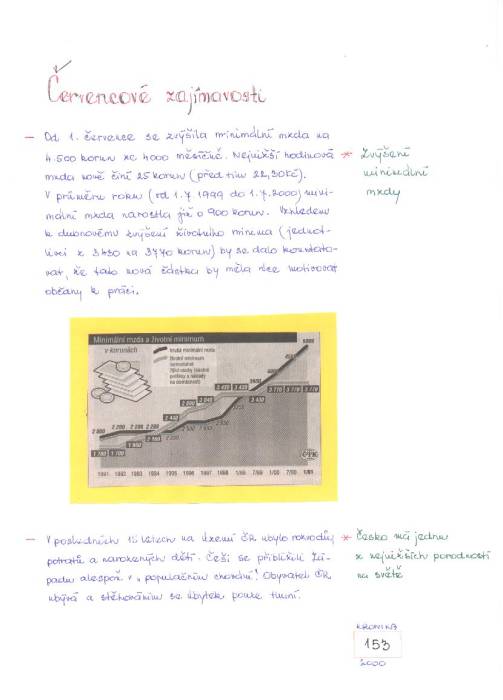 Červencové zajímavosti
— Od 1. července se zvýšila minimální mzda na
4.500 korun ze 4000 měsíčně. Nejnižší hodinová
mzda nově činí 25 korun (před tím 22,30 Kč).
V průměru roku (od 1.7.1999 do 1.7.2000) mini-
mální mzda narostla již o 900 korun. Vzhledem
k dubnovému zvýšení životního minima (jednot-
livci z 3430 na 3770 korun) by se dalo konstato-
vat, že tato nová částka by měla více motivovat
občany k práci.
* Zvýšení
minimální
mzdy
Minimální mzda a životní minimum
v korunách
hrubá minimální mzda
životní minimum
samostatně
žijící osoby (osobní
potřeby a náklady
na domácnost)
2 000 2 200 2 200 2 200
1 700 1 700 1 960 2 160
2 440 2 890 3 040 3 430 3 430
2 500 2 650 3 250 3 600 4 000 4 500 5 000
3 430 3 770 3 770 3 770
ČTK
1991 1992 1993 1994 1995 1996 1997 1998 1/99 7/99 1/00 7/00 1/01
— V posledních 15 letech na území ČR ubylo rozvodů,
potratů a narozených dětí. Češi se přiblížili Zá-
padu alespoň v "populačním chování". Obyvatel ČR
ubývá a stěhováním se úbytek pouze tlumí.
* Česko má jednu
z nejnižších porodností
na světě
KRONIKA
153
2000